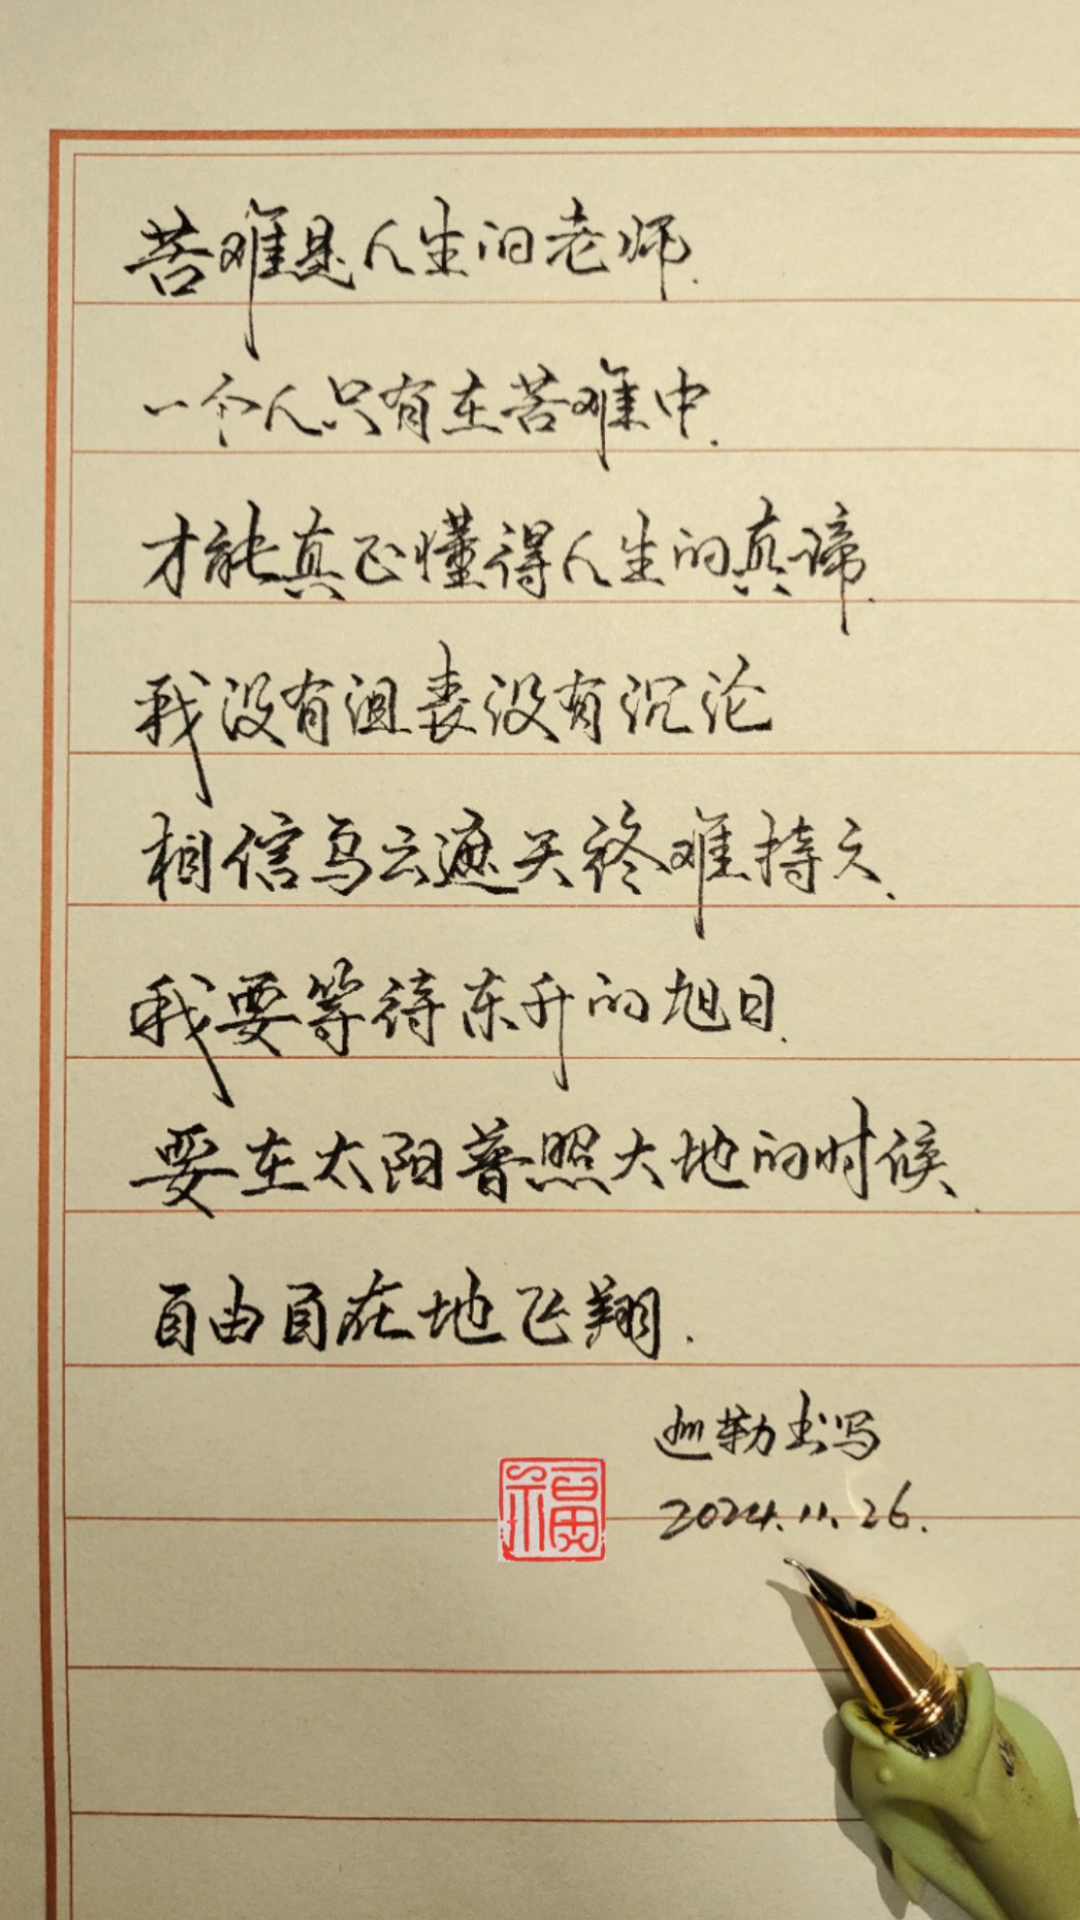 苦难是人生的老师.
一个人只有在苦难中.
才能真正懂得人生的真谛.
我没有沮丧没有沉沦
相信乌云遮天终难持久.
我要等待东升的旭日.
要在太阳普照大地的时候.
自由自在地飞翔.
巡勒书写
福
2024.11.26.